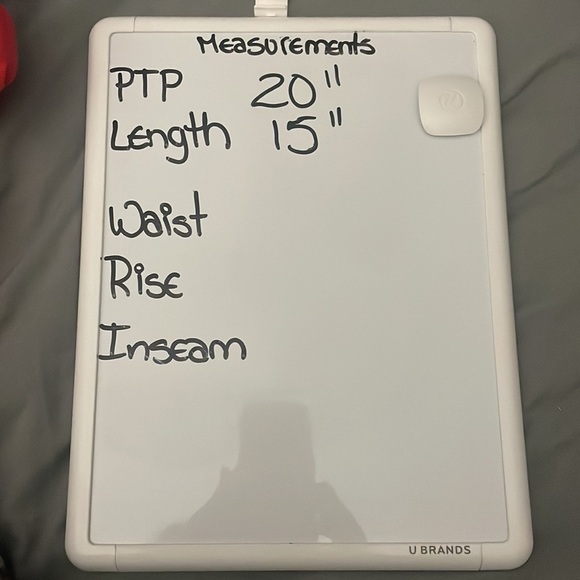 Measurements
PTP 20"
Length 15"
Waist
Rise
Inseam
U BRANDS